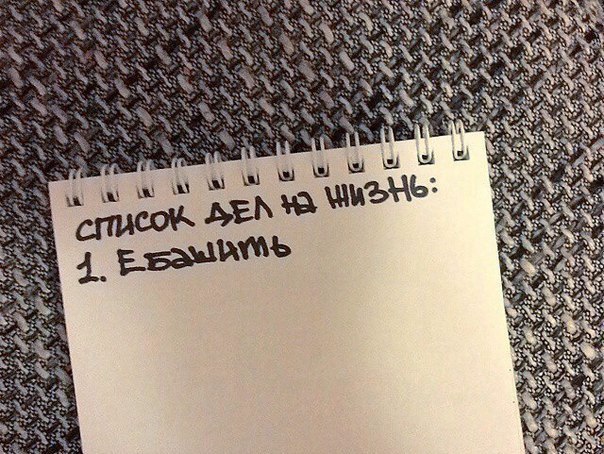 СПИСОК ДЕЛ НА ЖИЗНЬ:
1. ЕБАШИТЬ